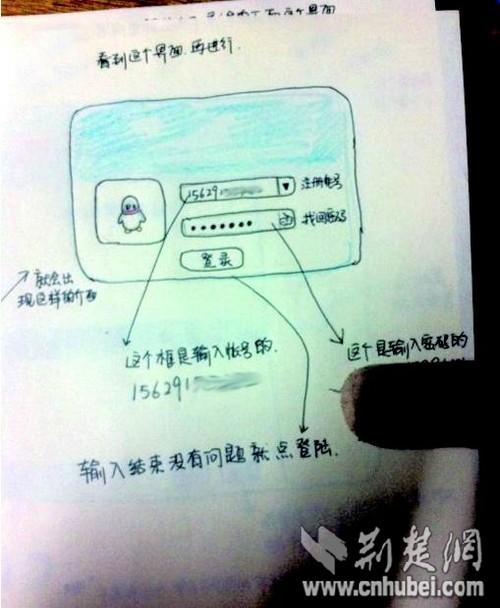 看到这个界面.再进行.
156291
注册帐号
找回密码
登录
就会出
现这样的介面
这个框是输入帐号的.
156291
这个是输入密码的
输入结束没有问题就点登陆.
荆楚網
www.cnhubei.com